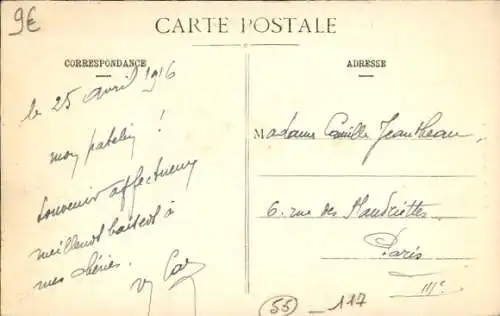 9€
CARTE POSTALE
CORRESPONDANCE
ADRESSE
le 25 avril 1916
mon patelin !
souvenir affectueux
meilleurs baisers à
mes chéries.
Madame Camille Jeantheau
6. rue des Haudriettes.
Paris
IIIe
55 - 117